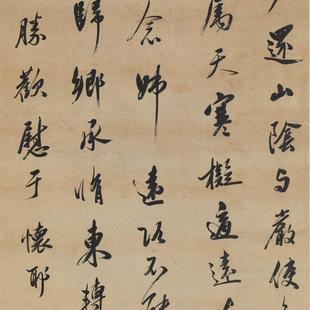 還山陰与嚴使
屬天寒擬適遠
念姊遠路不
歸鄉承脩東轉
勝歡慰于懷耶